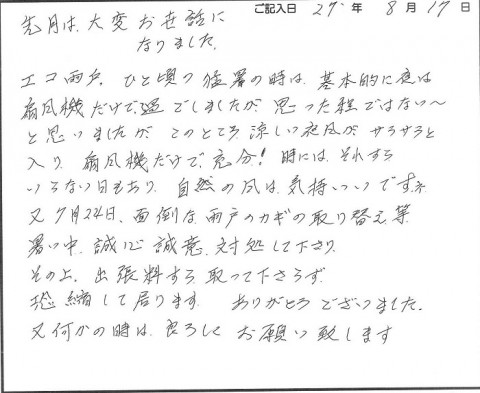 ご記入日 27年 8月 17日
先月は、大変お世話に
なりました。
エコ雨戸、ひと頃の猛署の時は、基本的に夜は
扇風機だけで過ごしましたが、思った程ではない〜
と思いましたが、このところ涼しい夜風が、サラサラと
入り、扇風機だけで充分！時には、それすら
いらない日もあり、自然の風は、気持いいですネ
又7月24日、面倒な雨戸のカギの取り替え、等
暑い中、誠心誠意、対処して下さり、
その上、出張料すら取って下さらず、
恐縮して居ります、ありがとうございました。
又何かの時は、良ろしくお願い致します